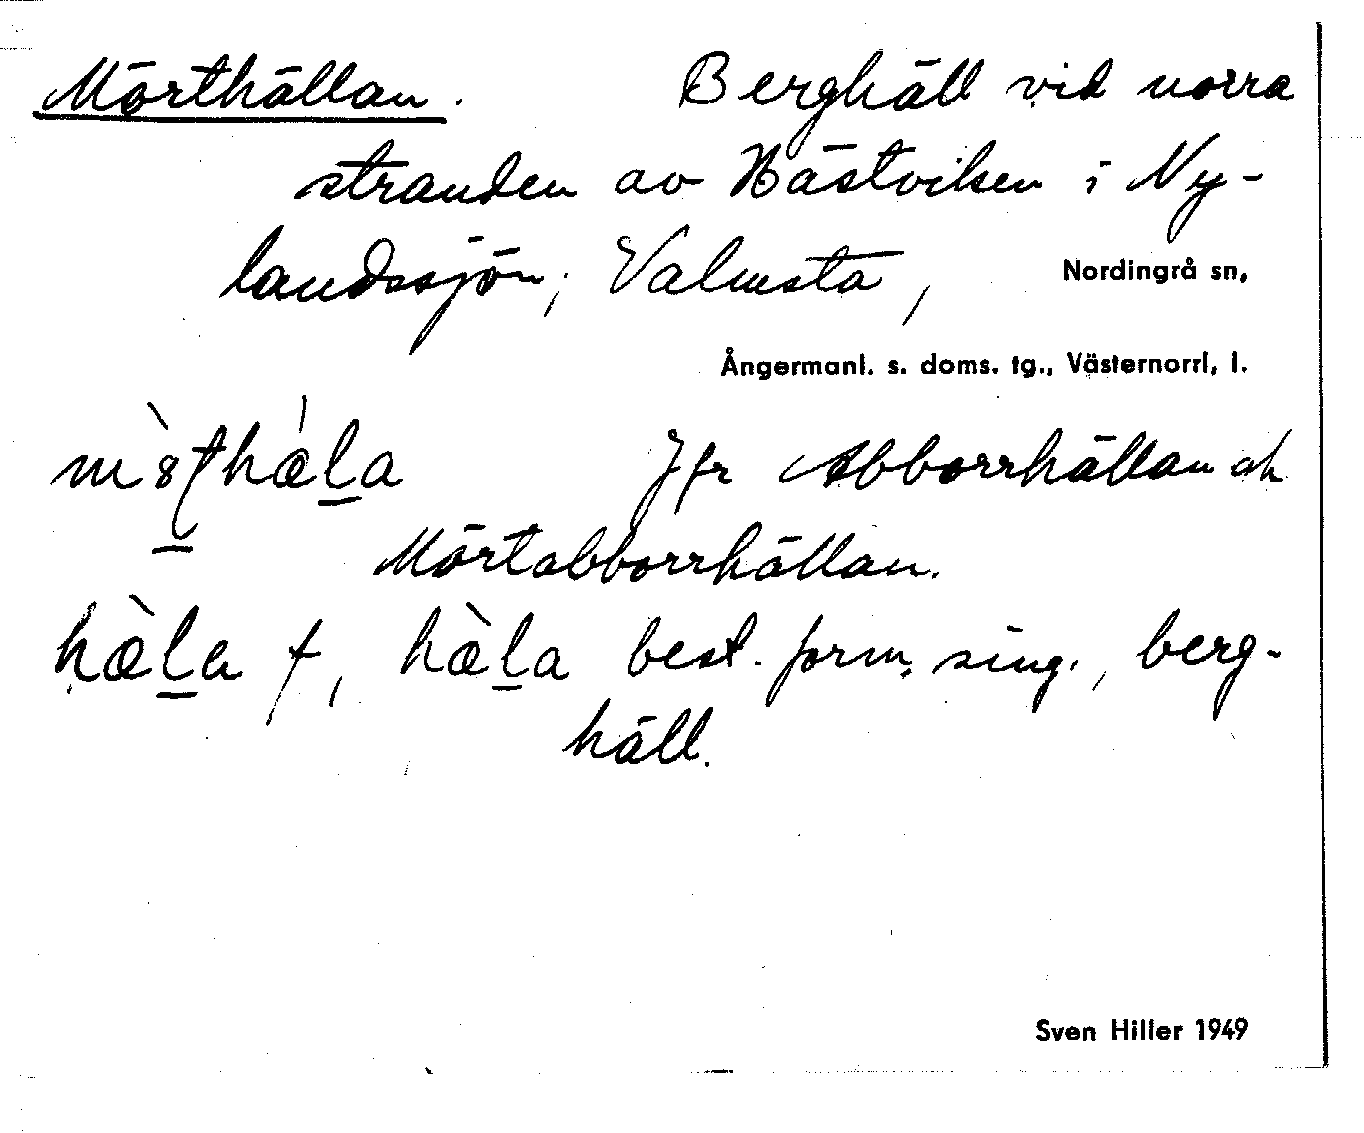 Mörthällan. Berghäll vid norra
stranden av Hästviken i Ny-
landssjön; Valmsta, Nordingrå sn,
Ångermanl. s. doms. tg., Västernorrl. l.
Jfr Abborrhällan och
Mörtabborrhällan.
hæ̀l̲a f, hæ̀l̲a best. form. sing., berg-
häll.
Sven Hiller 1949